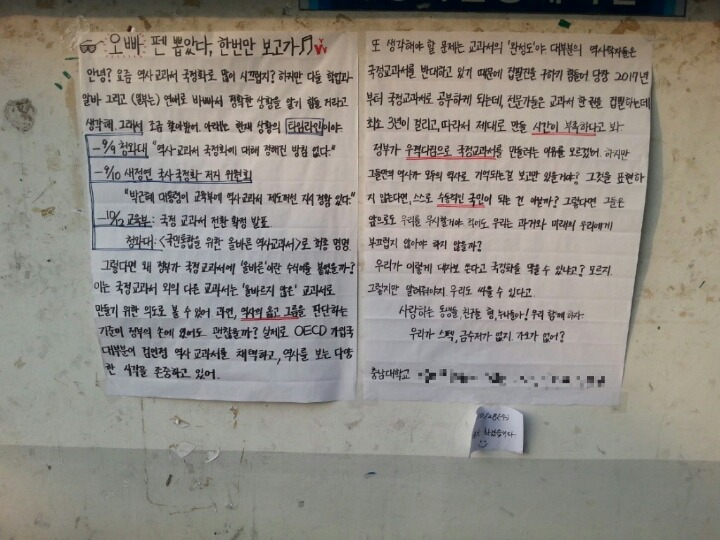 오빠 펜 뽑았다, 한번만 보고가♬
안녕? 요즘 역사교과서 국정화로 많이 시끄럽지? 하지만 다들 학업과
알바 그리고 (일부는) 연애로 바빠서 정확한 상황을 알기 힘들 거라고
생각해. 그래서 조금 찾아봤어. 아래는 현재 상황의 타임라인이야.
-9/9 청와대 "역사교과서 국정화에 대해 정해진 방침 없다."
-9/10 새정연 국사 국정화 저지 위원회
"박근혜 대통령이 교육부에 역사교과서 제도개선 지시 정황 있다."
-10/12 교육부: 국정 교과서 전환 확정 발표
청와대: <국민통합을 위한 올바른 역사교과서>로 최종 명명
그렇다면 왜 정부가 국정교과서에 '올바른'이란 수식어를 붙였을까?
이는 국정교과서 외의 다른 교과서는 '올바르지 않은' 교과서로
만들기 위한 의도로 볼 수 있어. 과연, 역사의 옳고 그름을 판단하는
기준이 정부의 손에 있어도 괜찮을까? 실제로 OECD 가입국
대부분이 검인정 역사교과서를 채택하고, 역사를 보는 다양
한 시각을 존중하고 있어.
또 생각해야 할 문제는 교과서의 '완성도'야. 대부분의 역사학자들은
국정교과서를 반대하고 있기 때문에 집필진을 구하기 힘들어. 당장 2017년
부터 국정교과서로 공부하게 되는데, 전문가들은 교과서 한 권을 집필하는데
최소 3년이 걸리고, 따라서 제대로 만들 시간이 부족하다고 봐.
정부가 우격다짐으로 국정교과서를 만들려는 이유를 모르겠어. 하지만
그들만의 역사가 와의 역사로 기억되는걸 보고만 있을거야? 그것을 표현하
지 않는다면, 스스로 수동적인 국민이 되는 건 아닐까? 그렇다면 그들은
앞으로도 우리를 무시할거야. 적어도 우리는 과거와 미래의 우리에게
부끄럽지 않아야 하지 않을까?
우리가 이렇게 대자보 쓴다고 국정화를 막을 수 있냐고? 모르지.
그렇지만 알려줘야지. 우리도 싸울 수 있다고.
사랑하는 동생들, 친구들, 형, 누나들아! 우리 함께 하자.
우리가 스펙, 금수저가 없지. 가오가 없어?
충남대학교
10/28(수)
사겠습니다